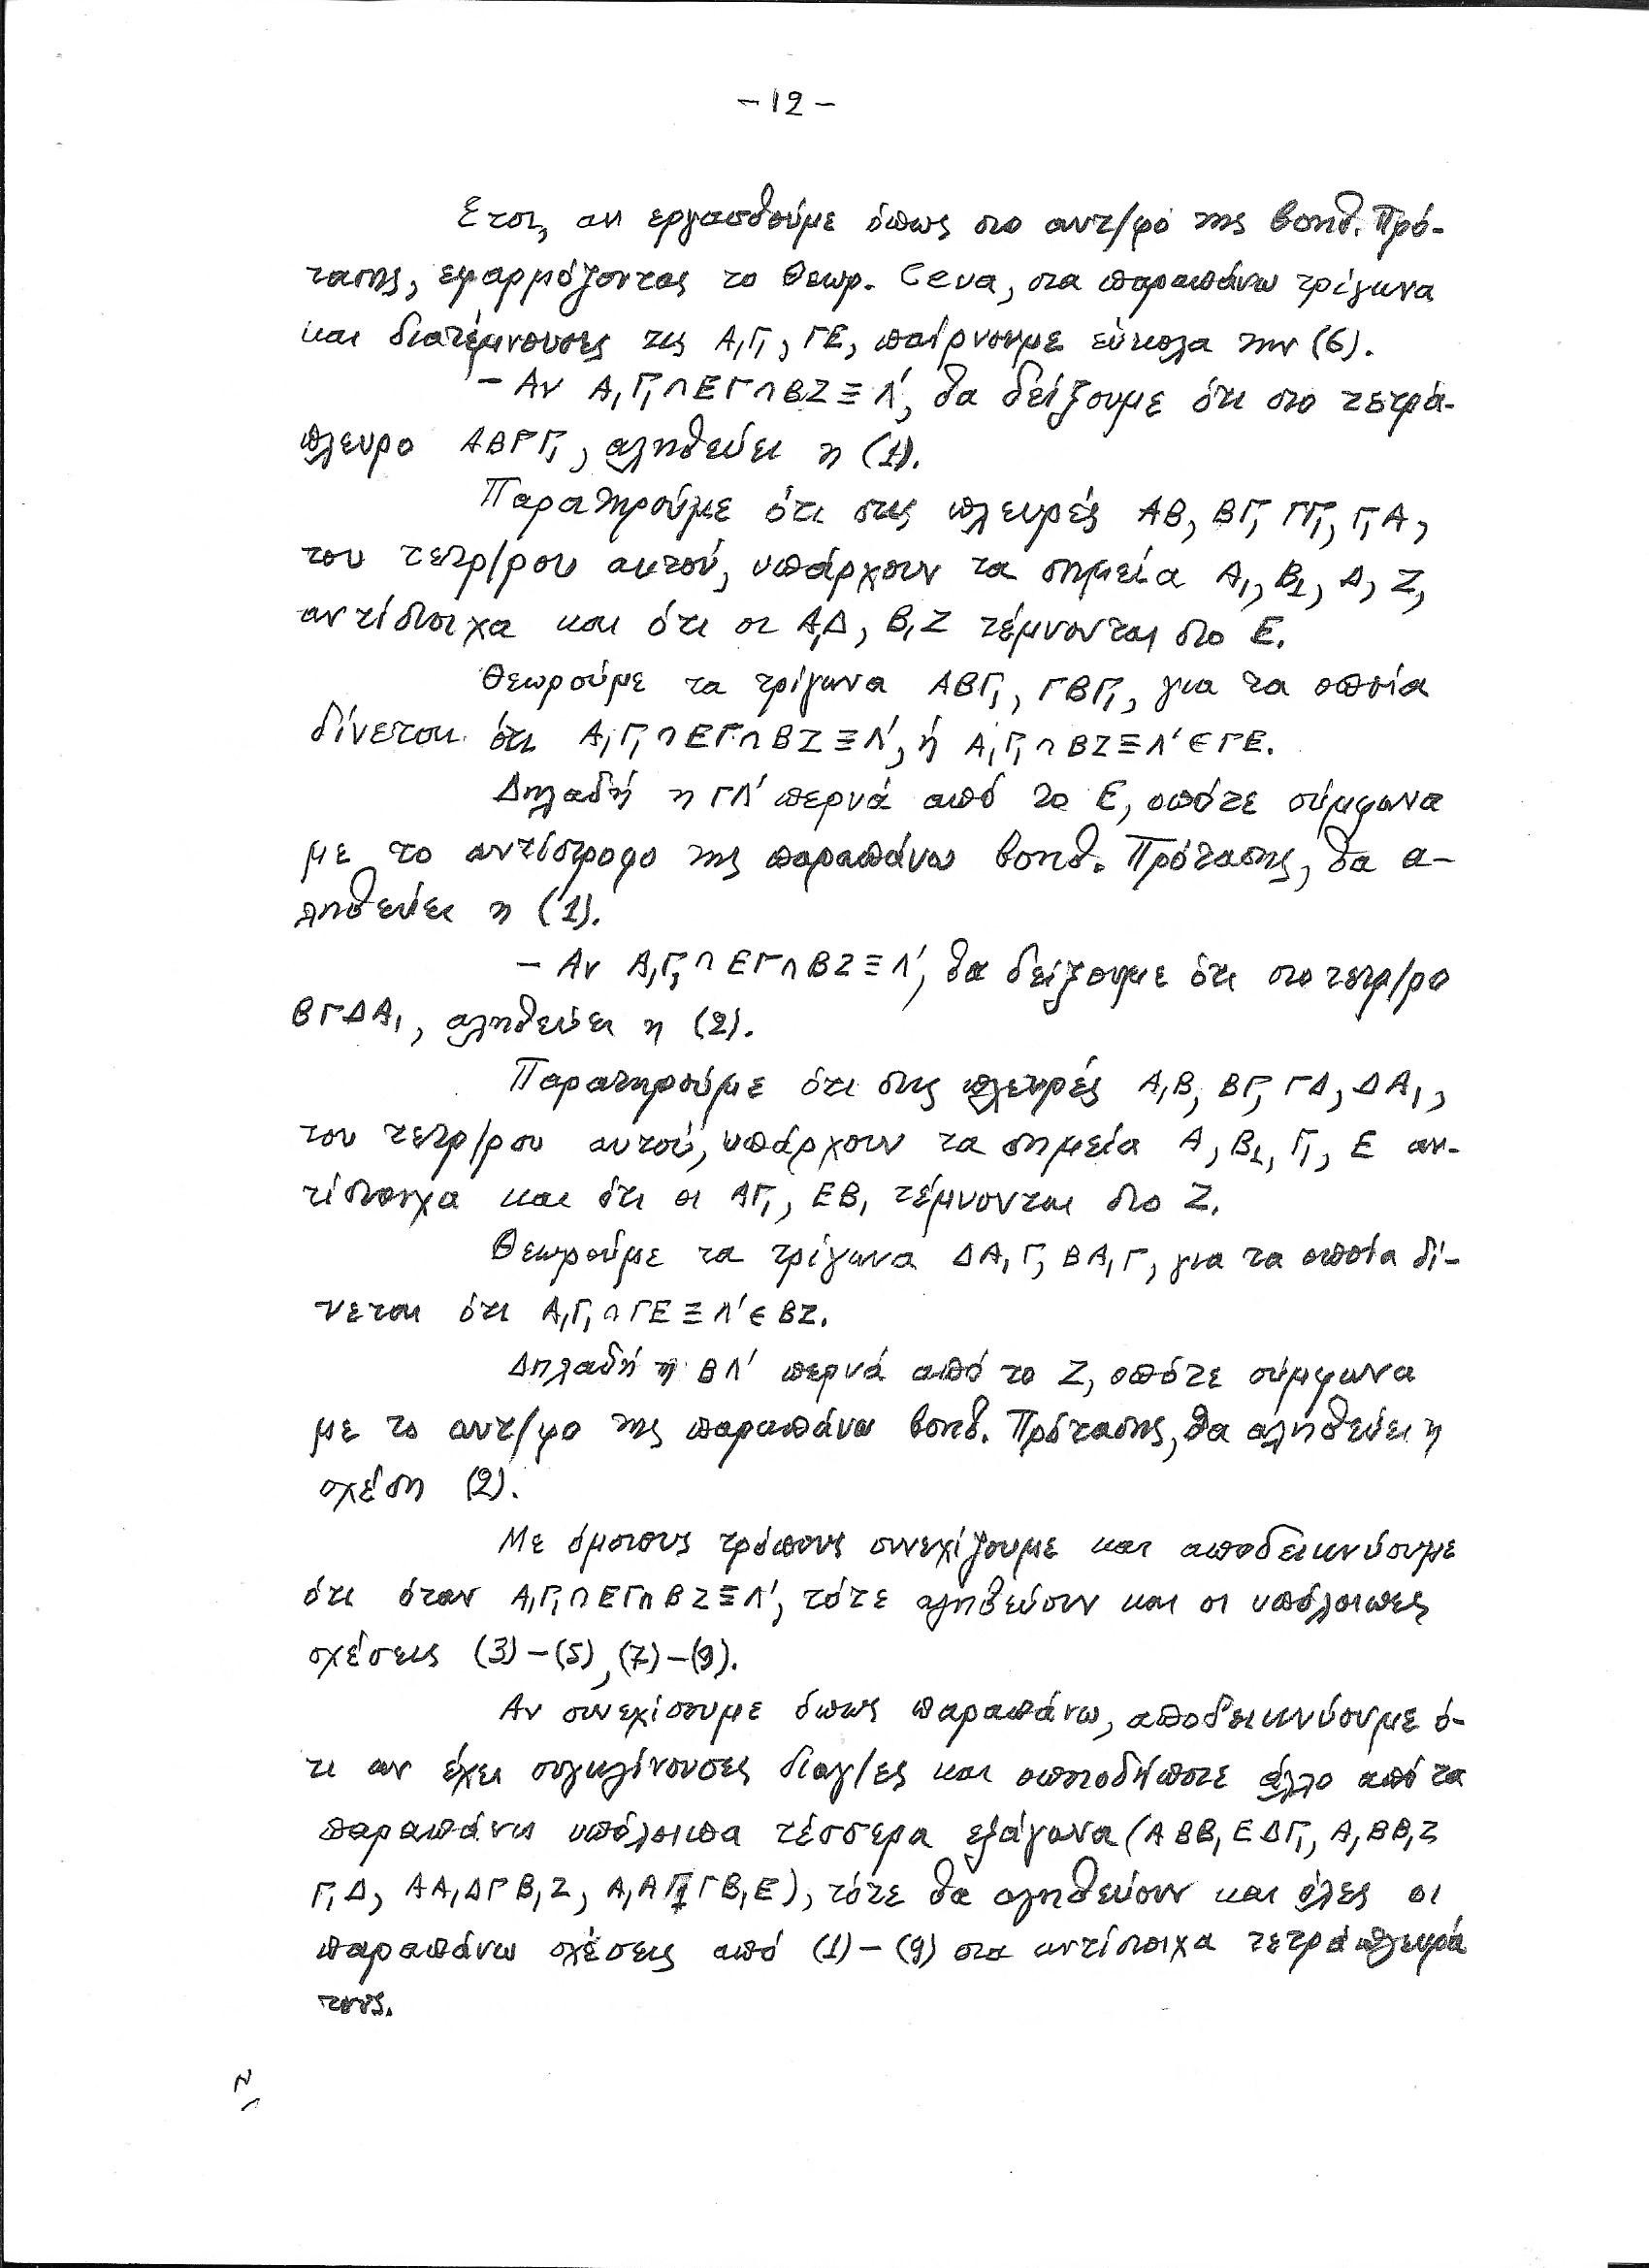 -12-
Ετσι, αν εργασθούμε όπως στο αντ/φο της βοηθ. Πρό-
τασης, εφαρμόζοντας το θεωρ. Ceva, στα παραπάνω τρίγωνα
και διατέμνουσες τις Α₁Γ₁, ΓΕ, παίρνουμε εύκολα την (6).
- Αν Α₁Γ₁∩ΕΓ∩ΒΖ≡Λ', θα δείξουμε ότι στο τετρά-
πλευρο ΑΒΓΓ₁, αληθεύει η (1).
Παρατηρούμε ότι στις πλευρές ΑΒ, ΒΓ, ΓΓ₁, Γ₁Α,
του τετρ/ρου αυτού, υπάρχουν τα σημεία Α₁, Β₁, Δ, Ζ,
αντίστοιχα και ότι οι Α₁Δ, Β₁Ζ τέμνονται στο Ε.
Θεωρούμε τα τρίγωνα ΑΒΓ₁, ΓΒΓ₁, για τα οποία
δίνεται ότι Α₁Γ₁∩ΕΓ∩ΒΖ≡Λ', ή Α₁Γ₁∩ΒΖ≡Λ'∈ΓΕ.
Δηλαδή η ΓΛ' περνά από το Ε, οπότε σύμφωνα
με το αντίστροφο της παραπάνω βοηθ. Πρότασης, θα α-
ληθεύει η (1).
- Αν Α₁Γ₁∩ΕΓ∩ΒΖ≡Λ', θα δείξουμε ότι στο τετρ/ρο
ΒΓΔΑ₁, αληθεύει η (2).
Παρατηρούμε ότι στις πλευρές Α₁Β, ΒΓ, ΓΔ, ΔΑ₁,
του τετρ/ρου αυτού, υπάρχουν τα σημεία Α, Β₁, Γ₁, Ε αν-
τίστοιχα και ότι οι ΑΓ₁, ΕΒ₁ τέμνονται στο Ζ.
Θεωρούμε τα τρίγωνα ΔΑ₁Γ, ΒΑ₁Γ, για τα οποία δί-
νεται ότι Α₁Γ₁∩ΓΕ≡Λ'∈ΒΖ.
Δηλαδή η ΒΛ' περνά από το Ζ, οπότε σύμφωνα
με το αντ/φο της παραπάνω βοηθ. Πρότασης, θα αληθεύει η
σχέση (2).
Με όμοιους τρόπους συνεχίζουμε και αποδεικνύουμε
ότι όταν Α₁Γ₁∩ΕΓ∩ΒΖ≡Λ', τότε αληθεύουν και οι υπόλοιπες
σχέσεις (3)-(5), (7)-(9).
Αν συνεχίσουμε όπως παραπάνω, αποδεικνύουμε ό-
τι αν έχει συγκλίνουσες διαγ/ες και οποιοδήποτε άλλο από τα
παραπάνω υπόλοιπα τέσσερα εξάγωνα (ΑΒΒ₁ΕΔΓ₁, Α₁ΒΒ₁Ζ
Γ₁Δ, ΑΑ₁ΔΓΒ₁Ζ, Α₁ΑΓ₁ΓΒ₁Ε), τότε θα αληθεύουν και όλες οι
παραπάνω σχέσεις από (1)-(9) στα αντίστοιχα τετράπλευρά
τους.